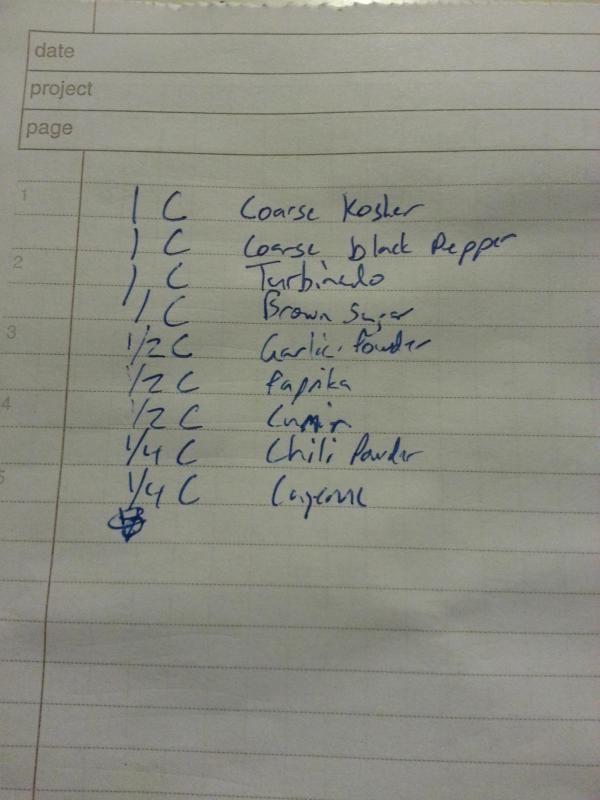 date
project
page
1
1 C Coarse Kosher
1 C Coarse black Pepper
2
1 C Turbinado
1 C Brown Sugar
3
1/2 C Garlic Powder
1/2 C Paprika
4
1/2 C Cumin
1/4 C Chili Powder
5
1/4 C Cayenne